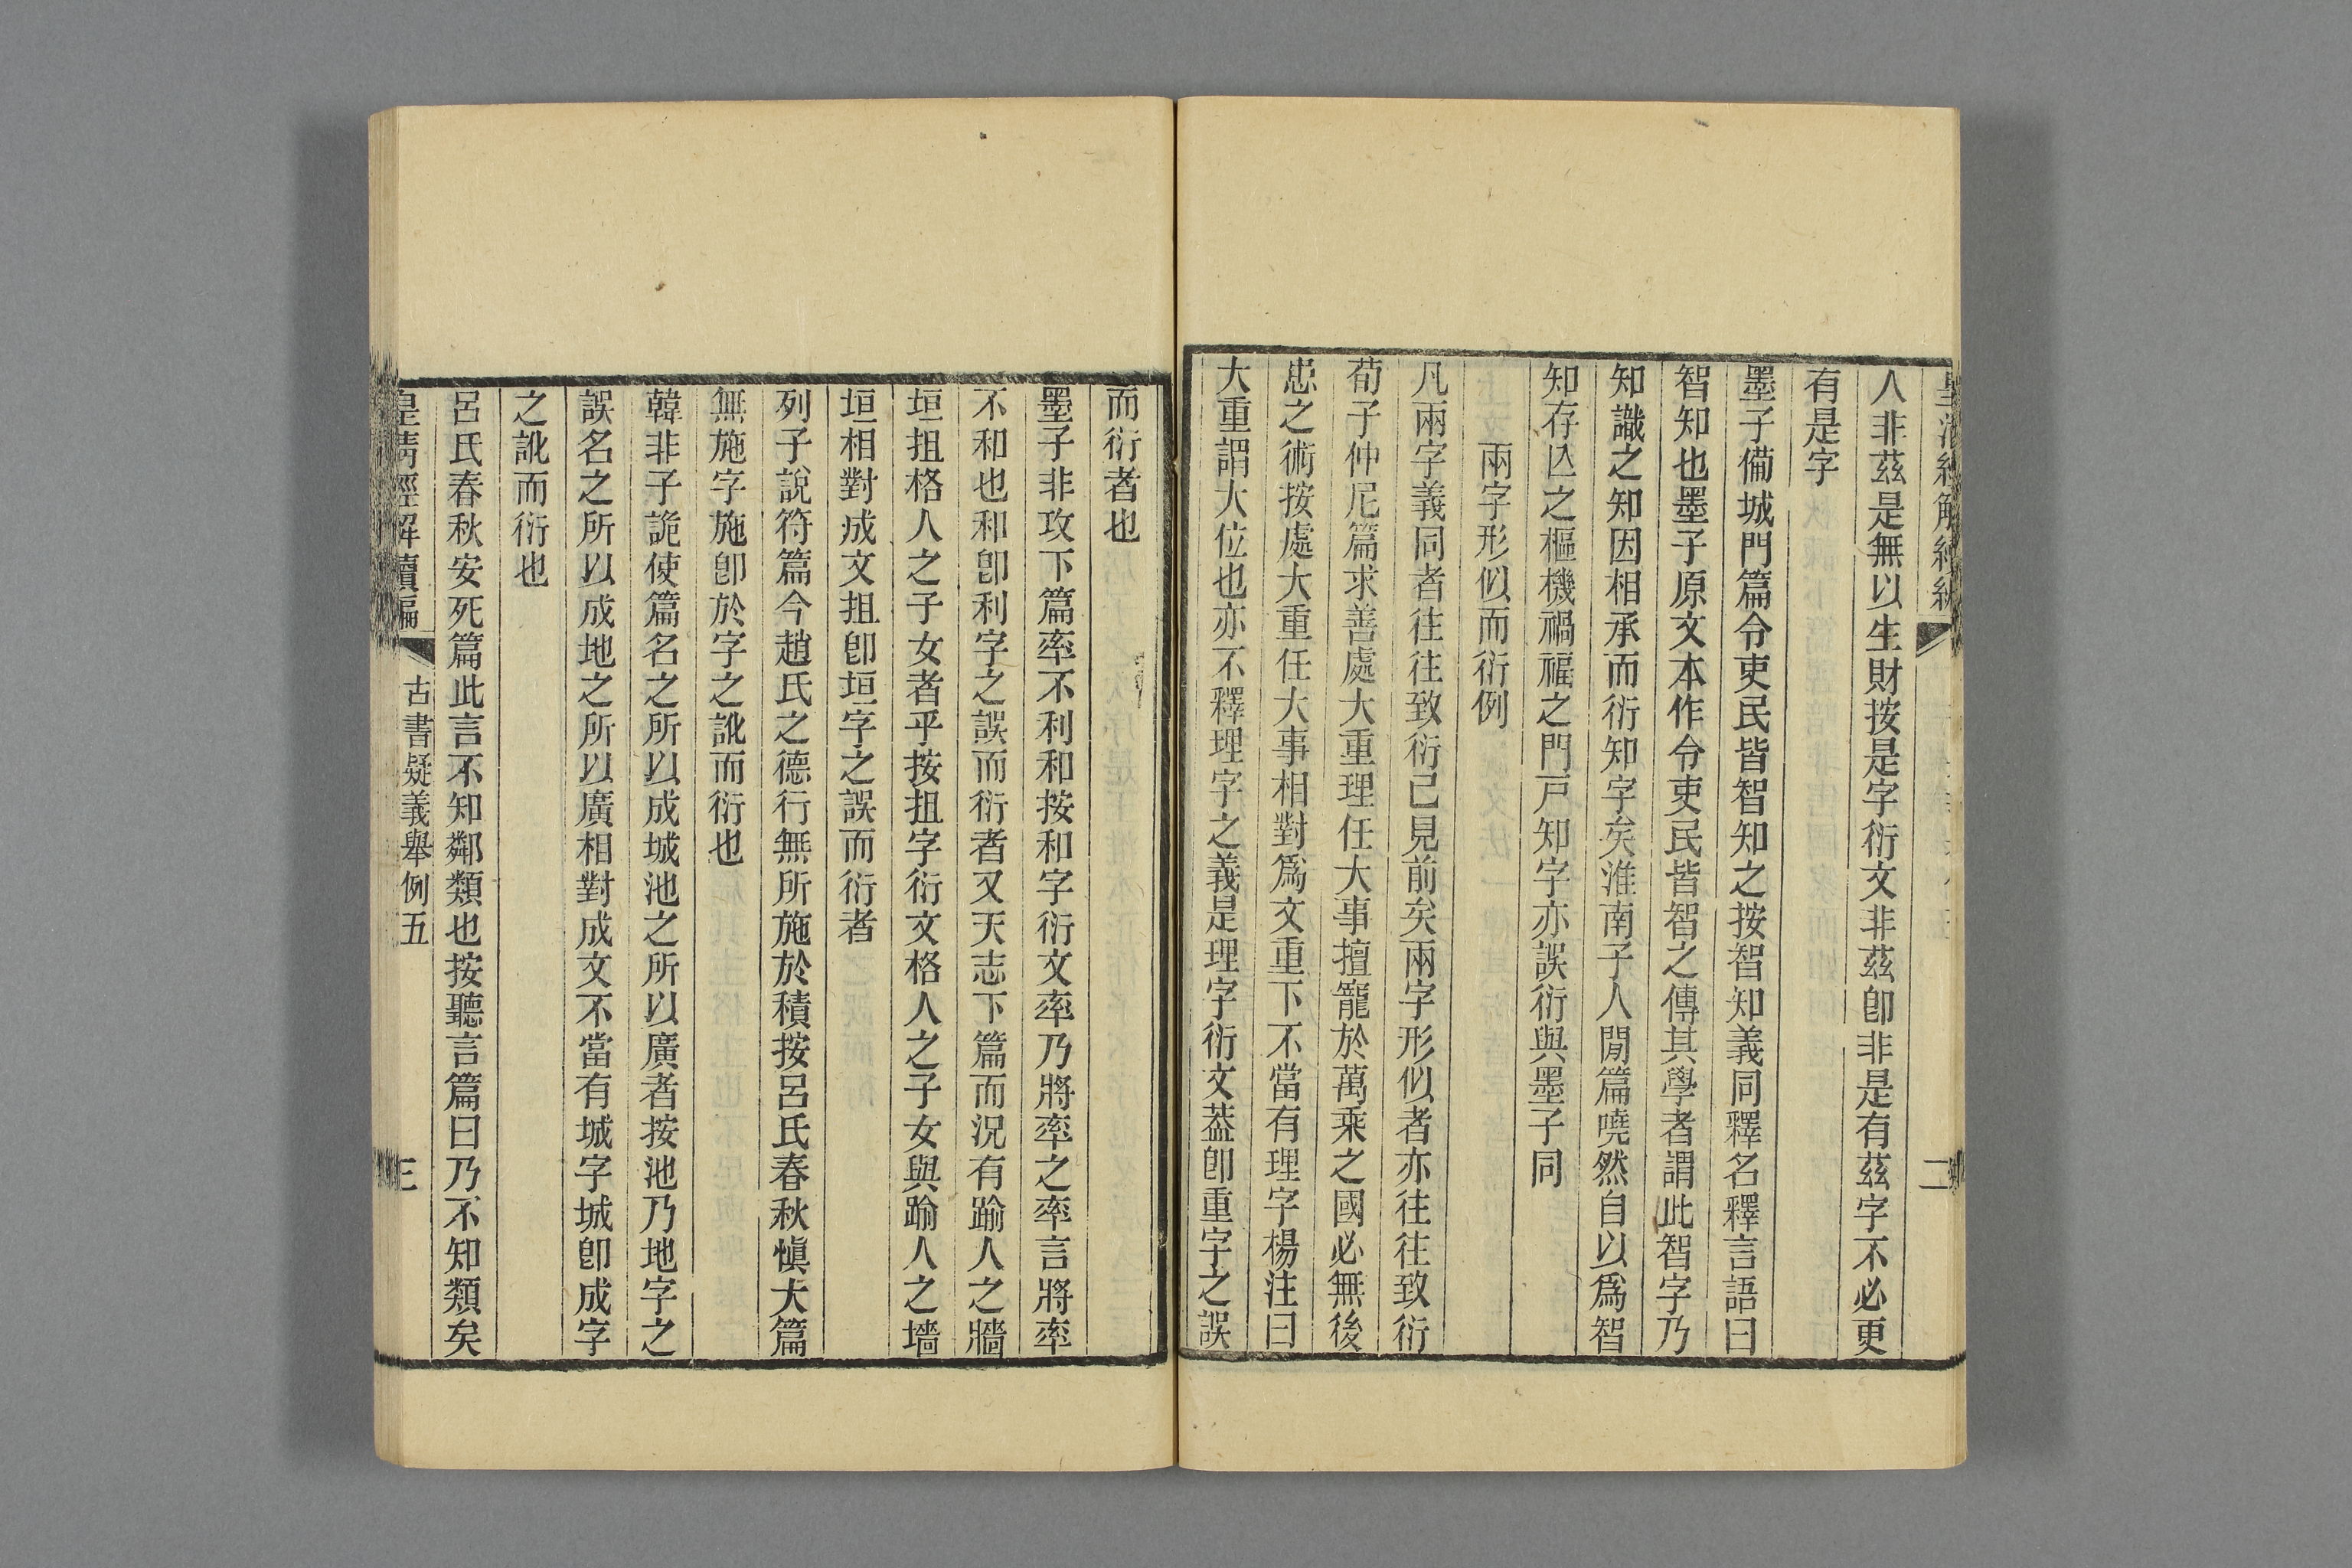 人非茲是無以生財按是字衍文非茲卽非是有茲字不必更
有是字
墨子備城門篇令吏民皆智知之按智知義同釋名釋言語曰
智知也墨子原文本作令吏民皆智之傳其學者謂此智字乃
知識之知因相承而衍知字矣淮南子人閒篇曉然自以爲智
知存亾之樞機禍福之門戸知字亦誤衍與墨子同
兩字形似而衍例
凡兩字義同者往往致衍已見前矣兩字形似者亦往往致衍
荀子仲尼篇求善處大重理任大事擅寵於萬乘之國必無後
患之術按處大重任大事相對爲文重下不當有理字楊注曰
大重謂大位也亦不釋理字之義是理字衍文葢卽重字之誤
而衍者也
墨子非攻下篇率不利和按和字衍文率乃將率之率言將率
不和也和卽利字之誤而衍者又天志下篇而況有踰人之牆
垣抯格人之子女者乎按抯字衍文格人之子女與踰人之墻
垣相對成文抯卽垣字之誤而衍者
列子說符篇今趙氏之德行無所施於積按呂氏春秋愼大篇
無施字施卽於字之訛而衍也
韓非子詭使篇名之所以成城池之所以廣者按池乃地字之
誤名之所以成地之所以廣相對成文不當有城字城卽成字
之訛而衍也
呂氏春秋安死篇此言不知鄰類也按聽言篇曰乃不知類矣
皇淸經解續編
古書疑義舉例五
三